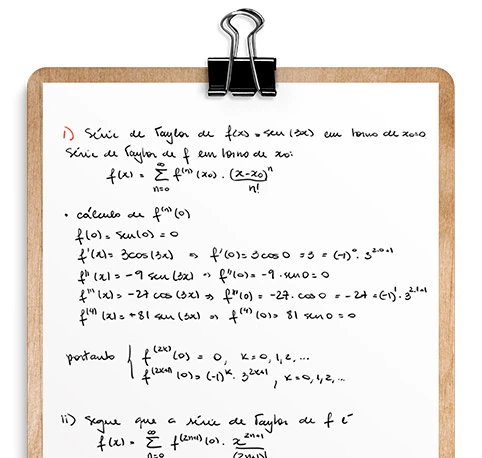 i) Série de Taylor de f(x) = sen(3x) em torno de x₀=0
Série de Taylor de f em torno de x₀:
f(x) = ∑_{n=0}^{∞} f⁽ⁿ⁾(x₀) · (x-x₀)ⁿ/n!
• cálculo de f⁽ⁿ⁾(0)
f(0) = sen(0) = 0
f'(x) = 3cos(3x) ⇒ f'(0) = 3 cos 0 = 3 = (-1)⁰ · 3^{2·0+1}
f''(x) = -9 sen(3x) ⇒ f''(0) = -9 · sen 0 = 0
f'''(x) = -27 cos(3x) ⇒ f'''(0) = -27 · cos 0 = -27 = (-1)¹ · 3^{2·1+1}
f⁽⁴⁾(x) = +81 sen(3x) ⇒ f⁽⁴⁾(0) = 81 sen 0 = 0
portanto { f^{(2k)}(0) = 0, k=0,1,2,...
f^{(2k+1)}(0) = (-1)^k · 3^{2k+1}, k=0,1,2,...
ii) Segue que a série de Taylor de f é
f(x) = ∑_{n=0}^{∞} f^{(2n+1)}(0) · x^{2n+1}/(2n+1)!